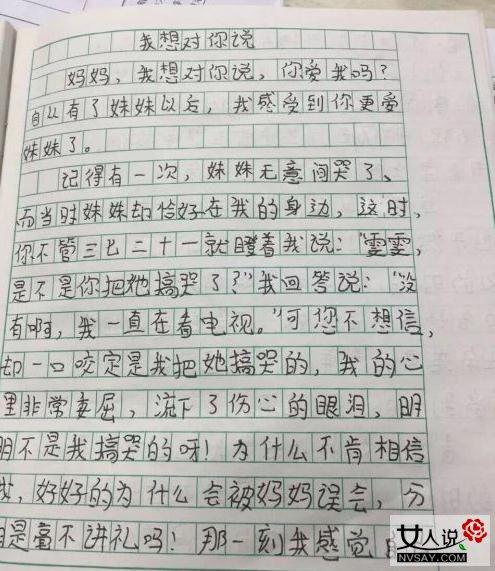 我想对你说
妈妈，我想对你说，你爱我吗？
自从有了妹妹以后，我感受到你更爱
妹妹了。
记得有一次，妹妹无意间哭了、
而当时妹妹却恰好在我的身边，这时，
你不管三七二十一就瞪着我说：“雯雯，
是不是你把她搞哭了？”我回答说：“没
有啊，我一直在看电视。”可您不想信，
却一口咬定是我把她搞哭的，我的心
里非常委屈，流下了伤心的眼泪，明
明不是我搞哭的呀！为什么不肯相信
我，好好的为什么会被妈妈误会，分
明是毫不讲礼吗！那一刻我感觉
女人说
NVSAY.COM